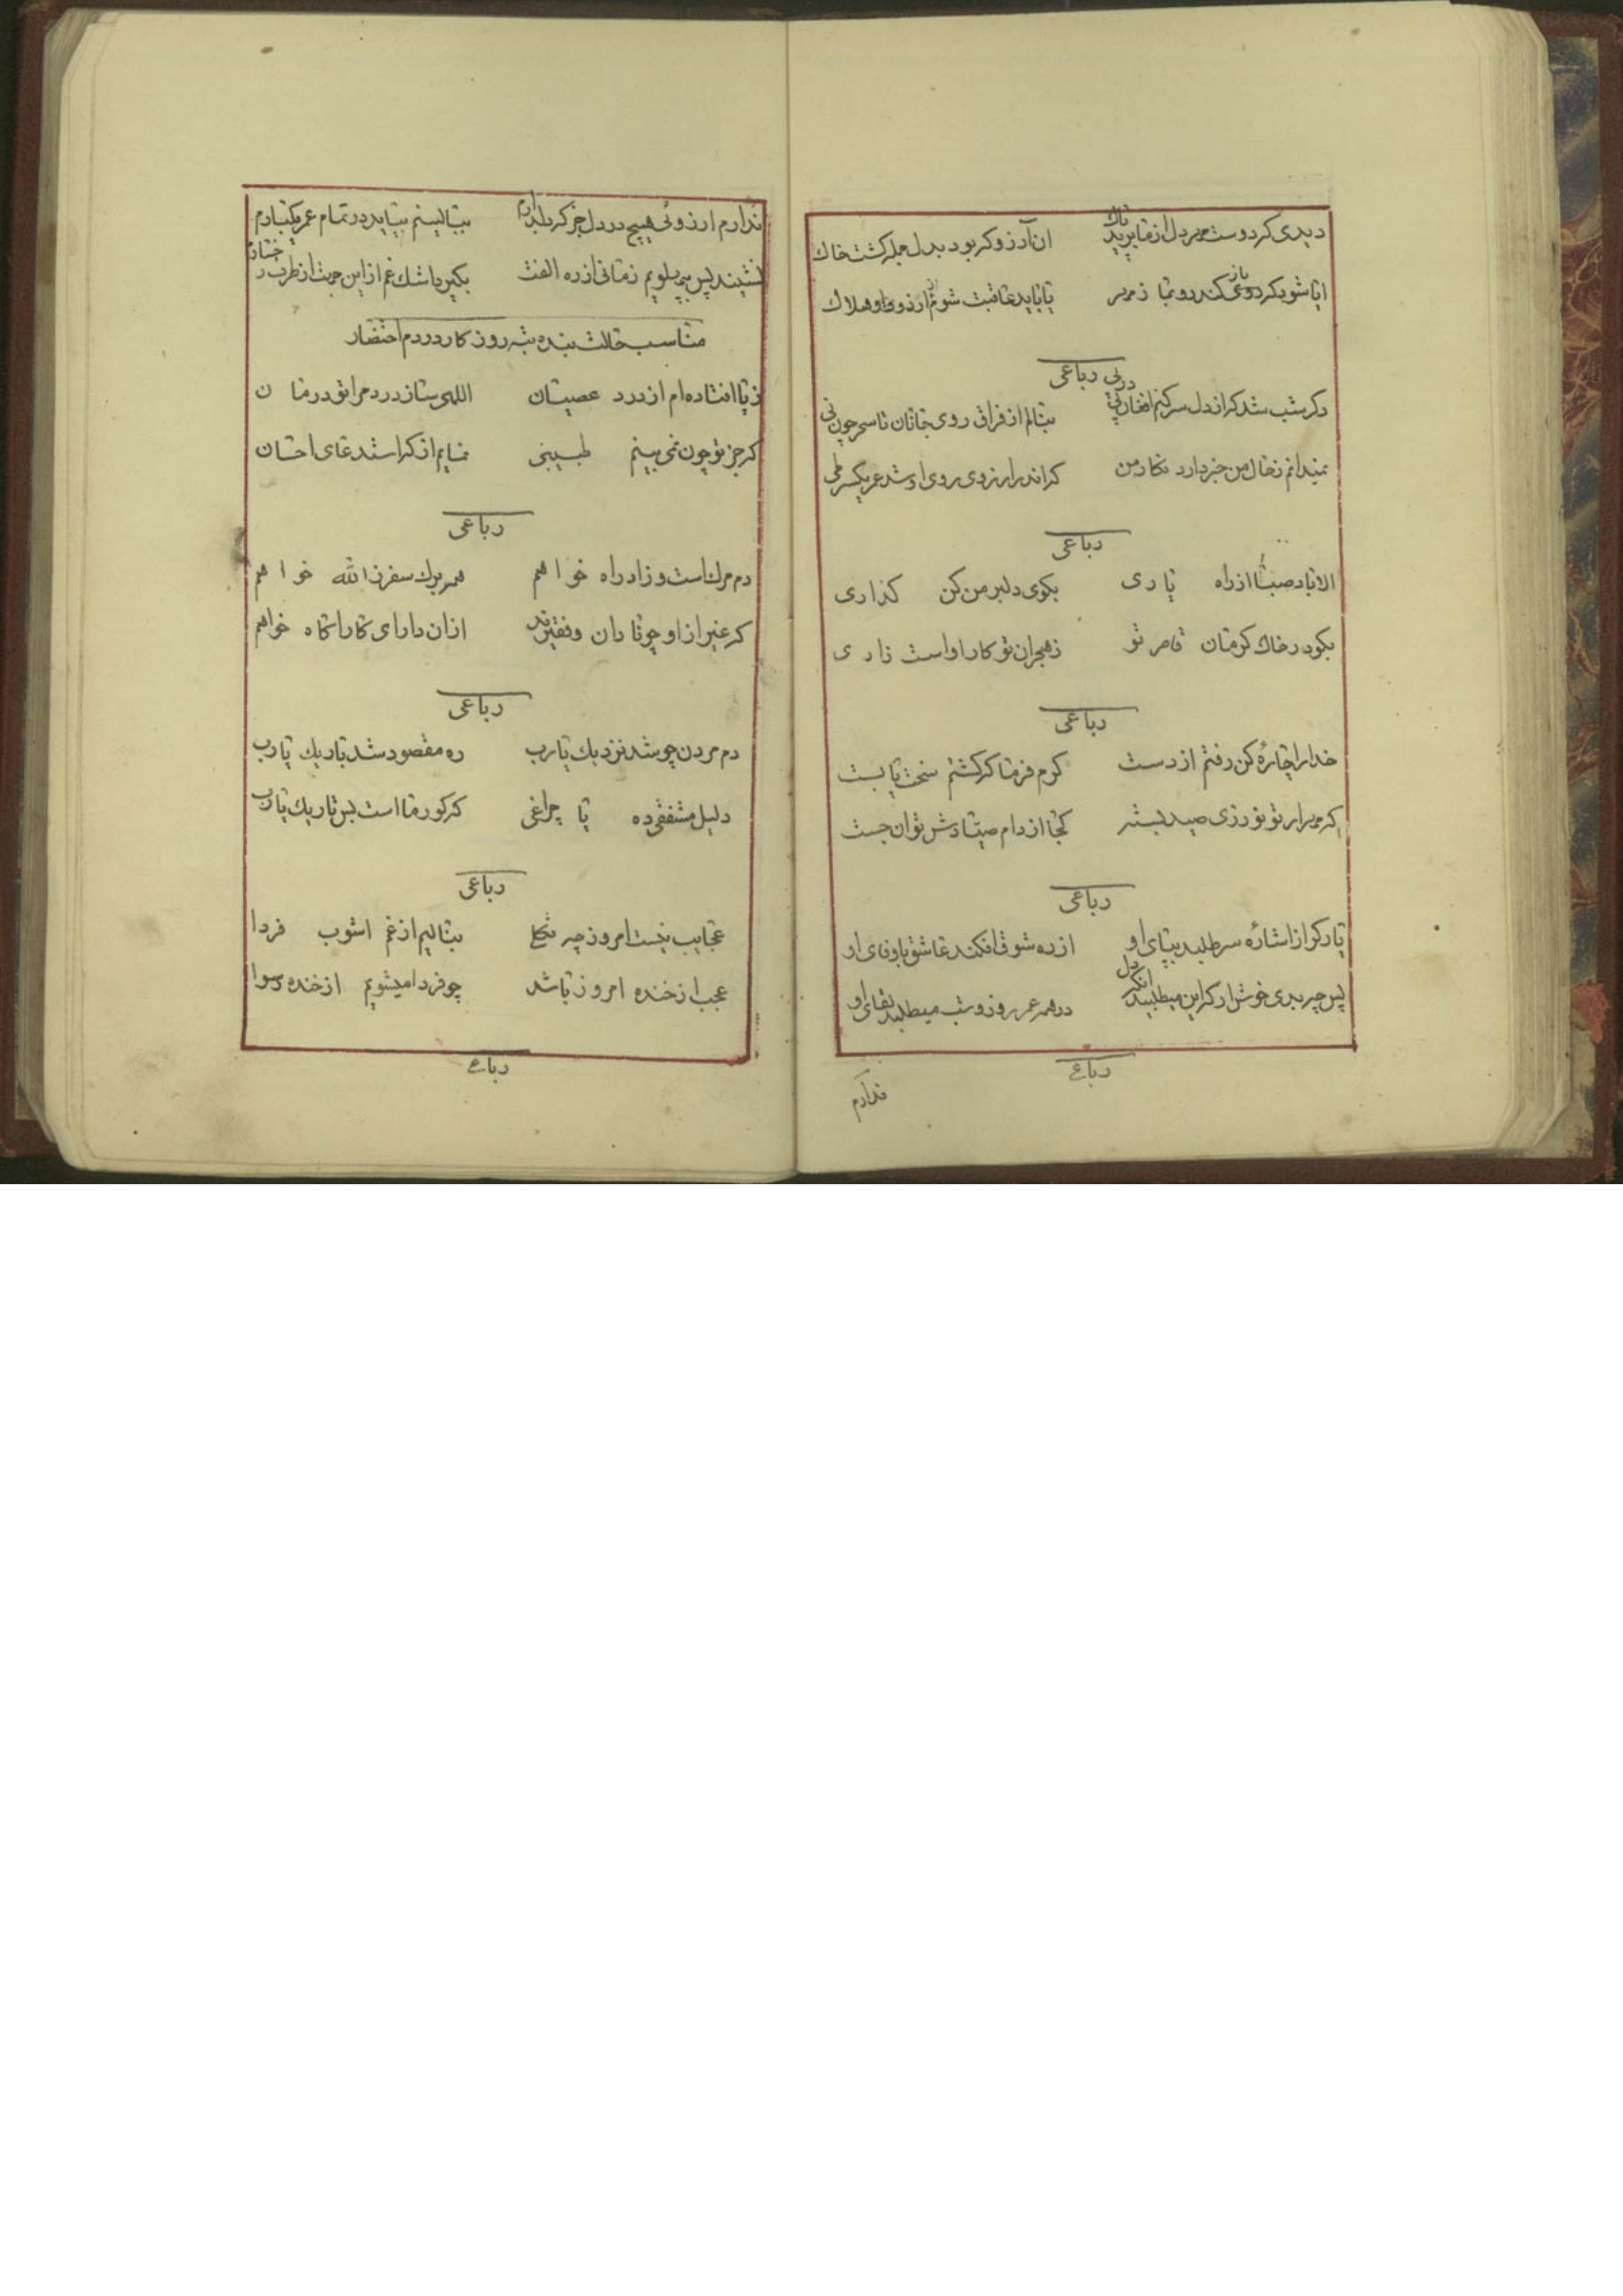 دیدی که دوست مهر دل از ما برید پاک
ان آرزو که بود بدل جمله گشت خاک
ایا شود که روی کند رو بما ز مهر
یا باید عاقبت شوم از ارزو هلاک
رباعی
دگر شب شد که از دل سر کنم افغان
بنالم از فراق روی جانان تا سحر چون نی
نمیدانم ز حال من خبر دارد نگار من
که اندر ارزوی روی او شد عمر یکسر طی
رباعی
الا باد صبا از راه یاری
بکوی دلبر من کن گذاری
بگو در خاک کرمان قاصر تو
ز هجران تو کار او است زاری
رباعی
خدا را چارهٔ کن رفتم از دست
کرم فرما که گشتم سخت پا بست
کجا از دام صیادش توان جست
رباعی
یار گر از اشاره سر طلبد بپای او
از ره شوق افکند عاشق باوفای او
در همه عمر روز و شب میطلبد لقای او
رباعی
ندارم
ندارم ارزوئی هیچ در دل جز که دلدارم
ببالینم بیاید در تمام عمر یکبارم
نشیند پس به پهلویم زمانی از ره الفت
بگیرد اشک غم از این جهت از طرف رخسارم
مناسب حالت بنده تبه روزکار در دم احتضار
ز پا افتاده ام از درد عصیان
الهی ساز دردم را تو درمان
که جز تو چون نمی بینم طبیبی
نمایم از که استدعای احسان
رباعی
دم مرک است و زاد راه خواهم
همه برک سفر ز الله خواهم
که غیر از او چو نادان و فقیرند
از ان دارای کارا کاه خواهم
رباعی
دم مردن چو شد نزدیک یا رب
ره مقصود شد باریک یا رب
دلیل مشفقی ده یا چراغی
که گور ما است بس تاریک یا رب
رباعی
عجایب نیست امروز چه
بنالیم از غم اشوب فردا
عجب از خنده امروز باشد
چو فردا میشویم از خنده رسوا
رباعی